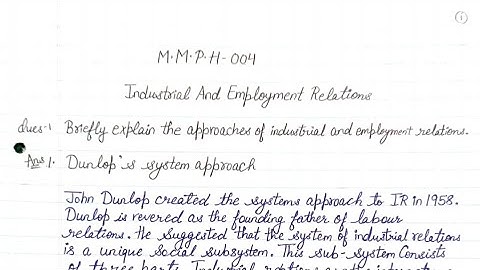 1
M.M.P.H-004
Industrial And Employment Relations
Ques-1 Briefly explain the approaches of industrial and employment relations.
Ans 1. Dunlop's system approach
John Dunlop created the systems approach to IR in 1958.
Dunlop is revered as the founding father of labour
relations. He suggested that the system of industrial relations
is a unique social subsystem. This sub-system consists
of three parts. Industrial